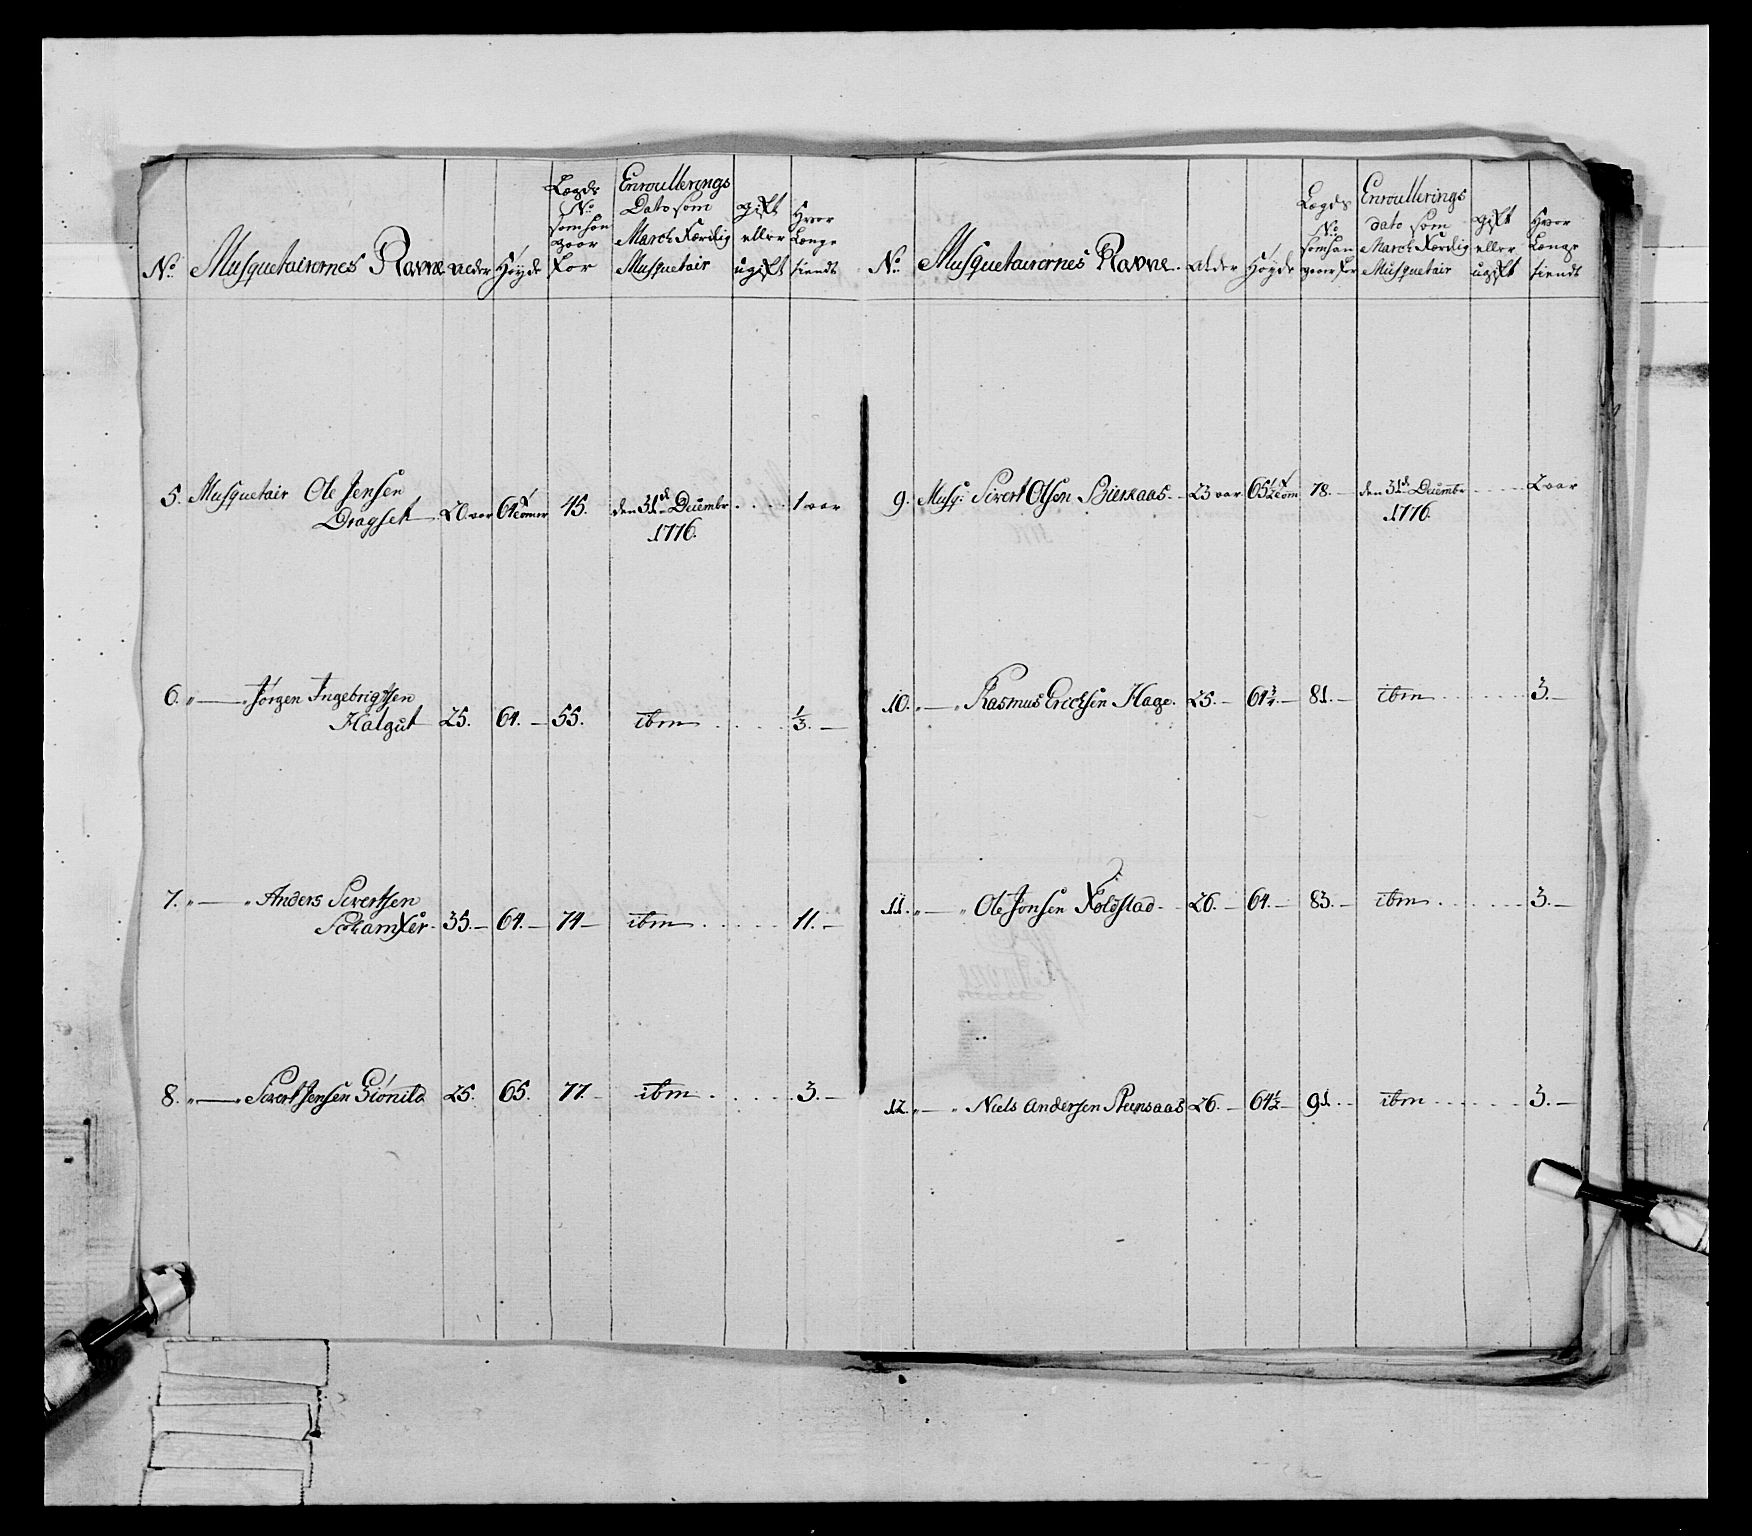 No. Musquetairernes Navne. alder Høyde Lægds No. som han gaar for Enroullerings Dato som March Færdig Musquetair gift eller ugift Hvor Længe tient
5. Musquetair Ole Jensen
Dragset 20. aar 64 tomer 45. den 31de Decembr 1 aar
1776.
6. " — " Jörgen Ingebrigtsen
Halgut 25. 64. — 55. ibm 1/3. —
7. " — " Anders Sivertsen
35. — 64. — 74 — ibm 11. —
8. " — " Sivert Jensen 25. 65. 77. — ibm 3. —
No. Musquetairernes Navne. alder Høyde Lægds No. som han gaar for Enroullerings dato som March Færdig Musquetair gift eller ugift Hvor Længe tient
9. Musq: Sivert Olsen 23 aar 65½ tom 78. — den 31de Decembr 2 aar
1776.
10. " — " Rasmus Erichsen Hage. 25. — 61¾ — 81. — ibm 3. —
11. " — " Ole Jonsen Koldstad 26. — 64. — 83. — ibm 3. —
12. " — " Niels Andersen Steensaas 26. — 64½ — 91. — ibm 3. —